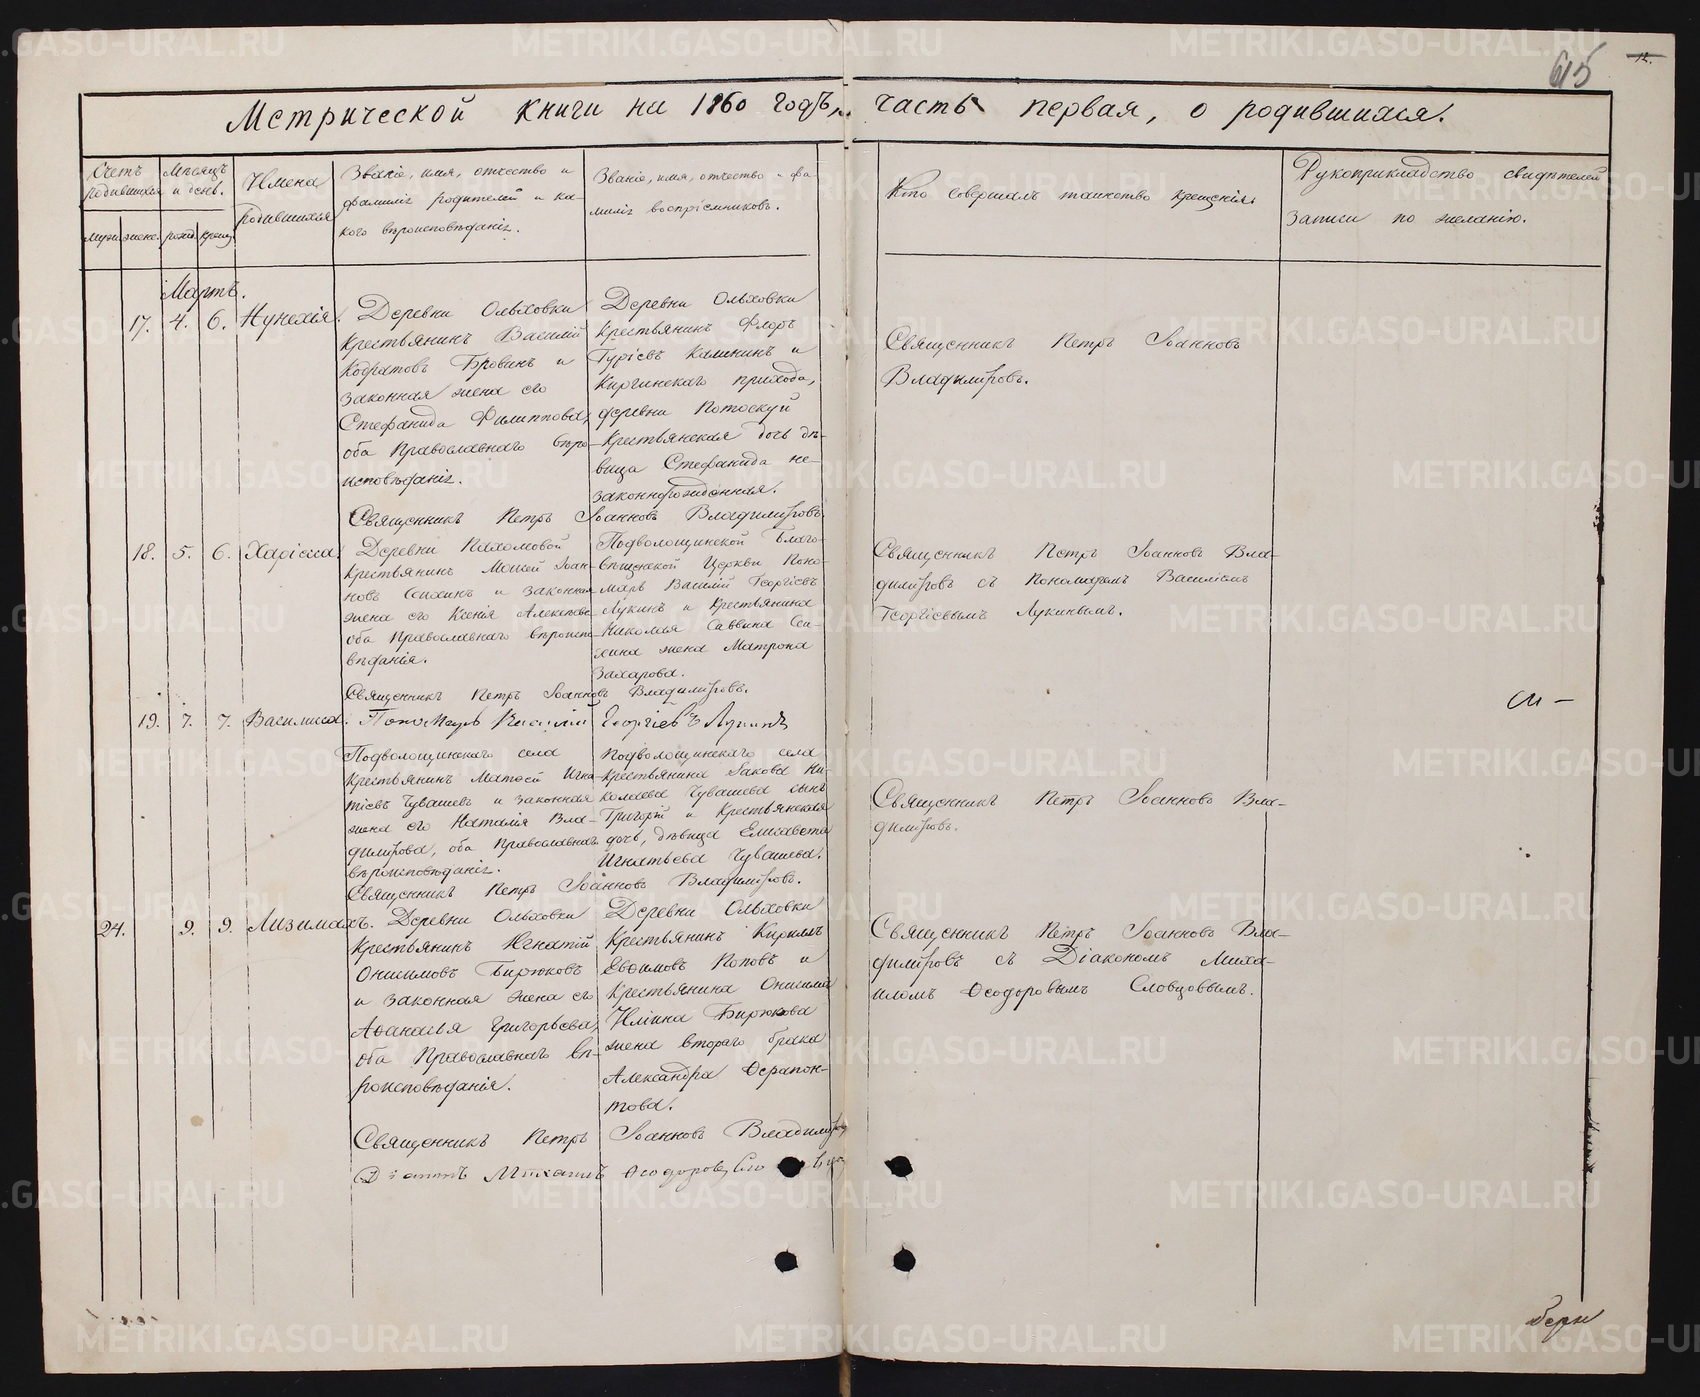 615
12.
Метрической книги на 1860 годъ, часть первая, о родившихся.
Счетъ родившихся
Мѣсяцъ и день.
Имена родившихся
Званіе, имя, отчество и
фамилія родителей и ка-
кого вѣроисповѣданія.
Званіе, имя, отчество и фа-
милія воспріемниковъ.
Кто совершалъ таинство крещенія.
Рукоприкладство свидѣтелей
записи по желанію.
муж. женс. рожд. крещ.
Мартъ.
17. 4. 6. Нунехія.
Деревни Ольховки
Крестьянинъ Василій
Бровинъ и
законная жена его
Стефанида Филиппова,
оба Православнаго вѣро-
исповѣданія.
Деревни Ольховки
Крестьянинъ Флоръ
ГурІевъ Калининъ и
Киргинскаго прихода,
деревни Потоскуй
Крестьянская дочь дѣ-
вица Стефанида не-
законнорожденная.
Священникъ Петръ Іоанновъ
Владимировъ.
Священникъ Петръ Іоанновъ Владимировъ.
18. 5. 6. Харіесса.
Деревни Пахомовой
Крестьянинъ Моисей Іоан-
новъ и законная
жена его Ксенія
оба Православнаго вѣроиспо-
вѣданія.
Подволощинской Благо-
вѣщенской Церкви Поно-
марь Василій Георгіевъ
Лукинъ и Крестьянина
Николая Саввина
жена Матрона
Захарова.
Священникъ Петръ Іоанновъ Вла-
димировъ съ Пономаремъ Василіемъ
Георгіевымъ Лукинымъ.
Священникъ Петръ Іоанновъ Владимировъ.
Пономарь Василій Георгіевъ Лукинъ
19. 7. 7. Василисса.
Подволощинскаго села
Крестьянинъ Матѳей Игна-
тіевъ Чувашевъ и законная
жена его Наталія Вла-
димирова, оба Православнаго
вѣроисповѣданія.
Подволощинскаго села
Крестьянина Іакова Ни-
колаева Чувашева сынъ
Григорій и Крестьянская
дочь, дѣвица Елисавета
Игнатьева Чувашева.
Священникъ Петръ Іоанновъ Вла-
димировъ.
Священникъ Петръ Іоанновъ Владимировъ.
24. 9. 9. Лизимахъ.
Деревни Ольховки
Крестьянинъ Игнатій
Онисимовъ Бирюковъ
и законная жена его
Аѳанасья Григорьева,
оба Православнаго вѣ-
роисповѣданія.
Деревни Ольховки
Крестьянинъ Кириллъ
Евѳимовъ Поповъ и
Крестьянина Онисима
Ильина Бирюкова
жена втораго брака
Александра Ѳерапон-
това.
Священникъ Петръ Іоанновъ Вла-
димировъ съ Діакономъ Миха-
иломъ Ѳеодоровымъ Словцовымъ.
Священникъ Петръ Іоанновъ Владимировъ
Михаилъ Ѳеодоровъ
METRIKI.GASO-URAL.RU